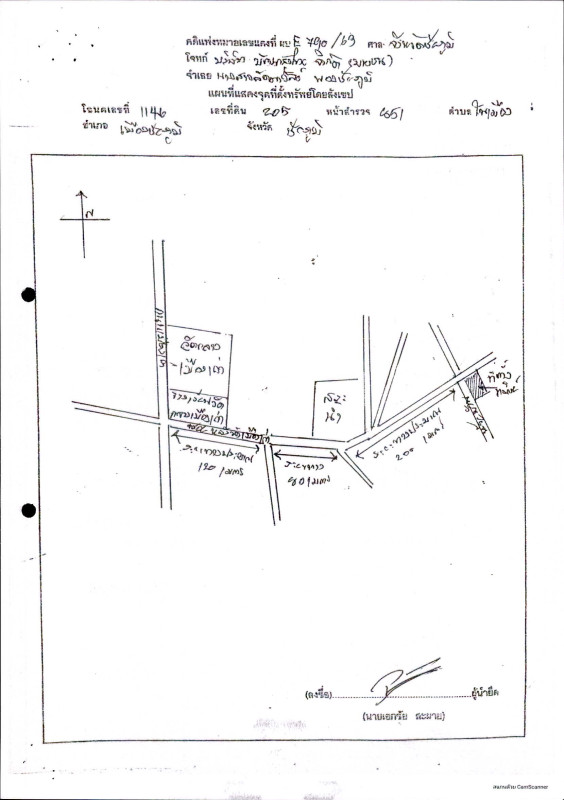 คดีแพ่งหมายเลขแดงที่ ผบ E 790/63 ศาล จังหวัดชัยภูมิ
โจทก์ จำกัด (มหาชน)
จำเลย
แผนที่แสดงจุดที่ตั้งทรัพย์โดยสังเขป
โฉนดเลขที่ 1146 เลขที่ดิน 205 หน้าสำรวจ 2651 ตำบล ในเมือง
อำเภอ เมืองชัยภูมิ จังหวัด ชัยภูมิ
น
วัดกลาง
เมืองเก่า
โรงเรียนวัด
กลางเมืองเก่า
สระ
น้ำ
ที่ตั้ง
ทรัพย์
ระยะทางประมาณ
120 เมตร
ระยะทาง
80 เมตร
ระยะทางประมาณ
200 เมตร
(ลงชื่อ) ผู้นำยึด
(นายเอกชัย สะมาย)
สแกนด้วย CamScanner